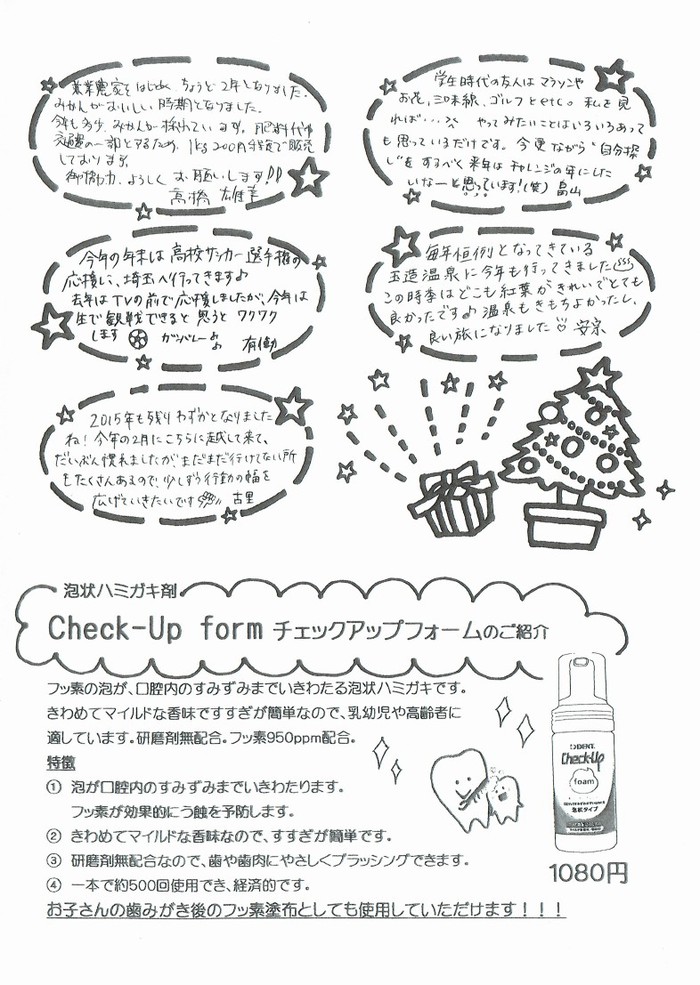 兼業農家をはじめ、ちょうど2年となりました。
みかんがおいしい時期となりました。
今年も多少、みかんが採れています。肥料代や
交通費の一部とするため、1kg 200円程度で販売
しております。
御協力、よろしくお願いします!!
高橋 雄幸
学生時代の友人は マラソンや
お花、三味線、ゴルフとetc。私を見
れば…、 やってみたいことはいろいろあって
も思っているだけです。今更ながら“自分探
し”をするべく来年はチャレンジの年にした
いなーと思っています!(笑) 畠山
今年の年末は高校サッカー選手権の
応援に、埼玉へ行ってきます♪
去年はTVの前で応援しましたが、今年は
生で観戦できると思うとワクワク
します ガンバレー♪ 有働
毎年恒例となってきている
玉造温泉に今年も行ってきました♨
この時季はどこも紅葉がきれいでとても
良かったです♪温泉もきもちよかったし、
良い旅になりました 安宗
2015年も残りわずかとなりました
ね!今年の2月にこちらに越して来て、
だいぶん慣れましたが、まだまだ行けてない所
もたくさんあるので、少しずつ行動の幅を
広げていきたいです 古里
泡状ハミガキ剤
Check-Up form チェックアップフォームのご紹介
フッ素の泡が、口腔内のすみずみまでいきわたる泡状ハミガキです。
きわめてマイルドな香味ですすぎが簡単なので、乳幼児や高齢者に
適しています。研磨剤無配合。フッ素950ppm配合。
特徴
① 泡が口腔内のすみずみまでいきわたります。
フッ素が効果的にう蝕を予防します。
② きわめてマイルドな香味なので、すすぎが簡単です。
③ 研磨剤無配合なので、歯や歯肉にやさしくブラッシングできます。
④ 一本で約500回使用でき、経済的です。
お子さんの歯みがき後のフッ素塗布としても使用していただけます!!!
DENT.
Check-Up
foam
泡状タイプ
1080円